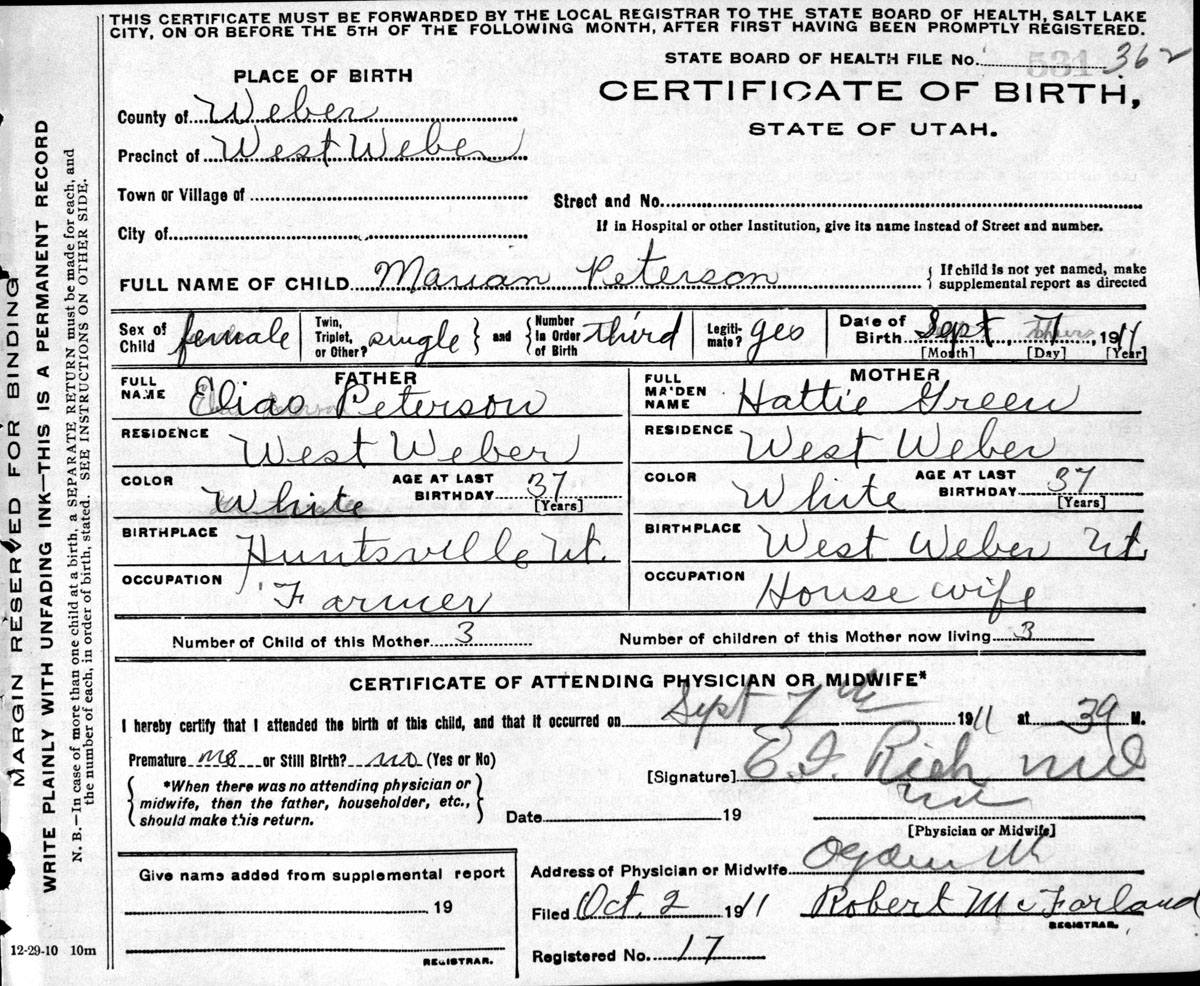 THIS CERTIFICATE MUST BE FORWARDED BY THE LOCAL REGISTRAR TO THE STATE BOARD OF HEALTH, SALT LAKE
CITY, ON OR BEFORE THE 5TH OF THE FOLLOWING MONTH, AFTER FIRST HAVING BEEN PROMPTLY REGISTERED.
STATE BOARD OF HEALTH FILE No. 531 362
PLACE OF BIRTH
CERTIFICATE OF BIRTH,
STATE OF UTAH.
County of Weber
Precinct of West Weber
Town or Village of
Street and No.
City of
If in Hospital or other Institution, give its name instead of Street and number.
FULL NAME OF CHILD Marian Peterson { If child is not yet named, make
supplemental report as directed
Sex of Child female Twin, Triplet, or Other? single } and { Number in Order of Birth third Legiti- mate? yes Date of Birth Sept 7 1911
[Month] [Day] [Year]
FATHER MOTHER
FULL NAME Elias Peterson FULL MAIDEN NAME Hattie Green
RESIDENCE West Weber RESIDENCE West Weber
COLOR White AGE AT LAST BIRTHDAY 37 [Years] COLOR White AGE AT LAST BIRTHDAY 37 [Years]
BIRTHPLACE Huntsville Ut. BIRTHPLACE West Weber Ut
OCCUPATION Farmer OCCUPATION House wife
Number of Child of this Mother 3 Number of children of this Mother now living 3
CERTIFICATE OF ATTENDING PHYSICIAN OR MIDWIFE*
I hereby certify that I attended the birth of this child, and that it occurred on Sept 7th 1911 at 39 M.
Premature no or Still Birth? no (Yes or No)
[Signature] E. I. Rich md
{ *When there was no attending physician or
midwife, then the father, householder, etc.,
should make this return. }
Date 19 md
[Physician or Midwife]
Address of Physician or Midwife Ogden Ut
Give name added from supplemental report
19
REGISTRAR.
Filed Oct. 2 1911 Robert McFarland
REGISTRAR.
Registered No. 17
12-29-10 10m
MARGIN RESERVED FOR BINDING
WRITE PLAINLY WITH UNFADING INK—THIS IS A PERMANENT RECORD
N. B.—In case of more than one child at a birth, a SEPARATE RETURN must be made for each, and
the number of each, in order of birth, stated. SEE INSTRUCTIONS ON OTHER SIDE.